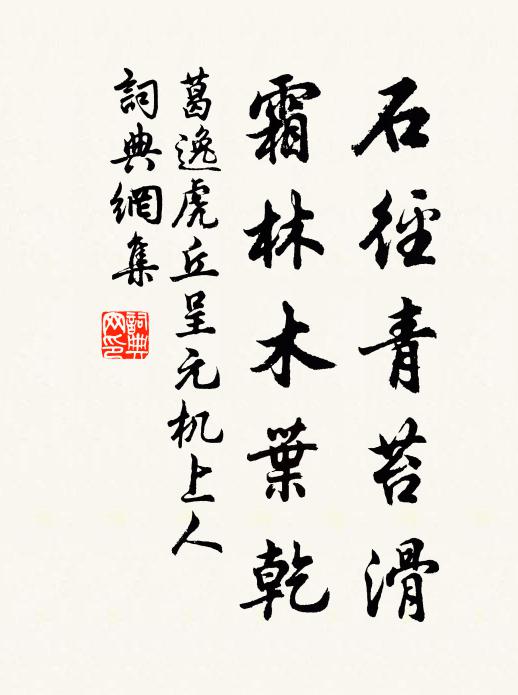 石徑青苔滑
霜林木葉乾
葛逸虎丘呈元机上人
詞典網集
詞典網印